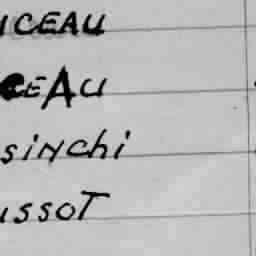 ICEAU
CEAU
sinchi
ussoT